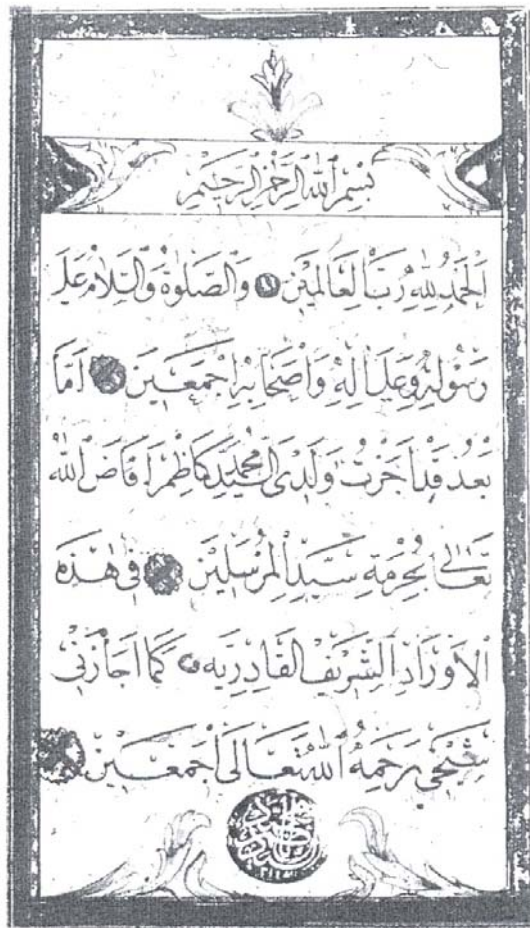 بِسْمِ اللّٰهِ الرَّحْمٰنِ الرَّحِيْمِ
اَلْحَمْدُ لِلّٰهِ رَبِّ الْعَالَمِيْنَ وَالصَّلٰوةُ وَالسَّلَامُ عَلٰى
رَسُوْلِهِ وَعَلٰى اٰلِهِ وَاَصْحَابِهِ اَجْمَعِيْنَ اَمَّا
بَعْدُ قَدْ اَجَزْتُ وَلَدِى السَّيِّدْ مُحَمَّدْ كَاظِمْ اَفَاضَ اللّٰهُ
تَعَالٰى بِحُرْمَةِ سَيِّدِ الْمُرْسَلِيْنَ فِى هٰذِهِ
الْاَوْرَادِ الشَّرِيْفِ الْقَادِرِيَّه كَمَا اَجَازَنِى
شَيْخِى رَحِمَهُ اللّٰهُ تَعَالٰى اَجْمَعِيْنَ